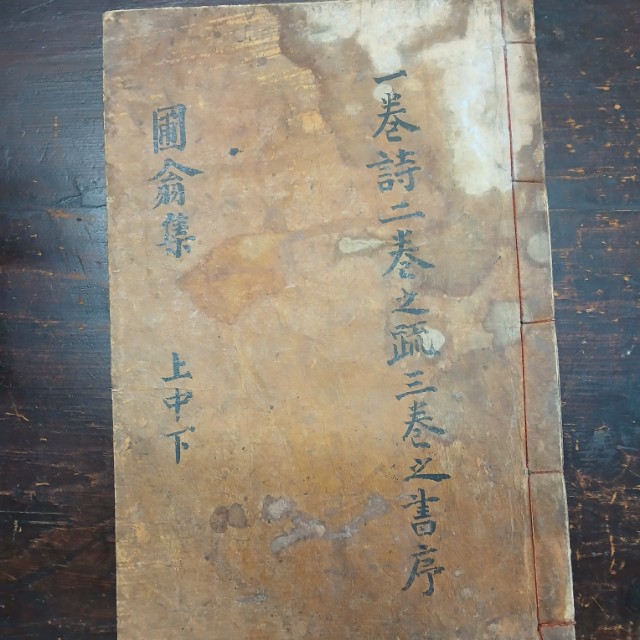 一卷詩二卷之疏三卷之書序
圃翁集 上中下